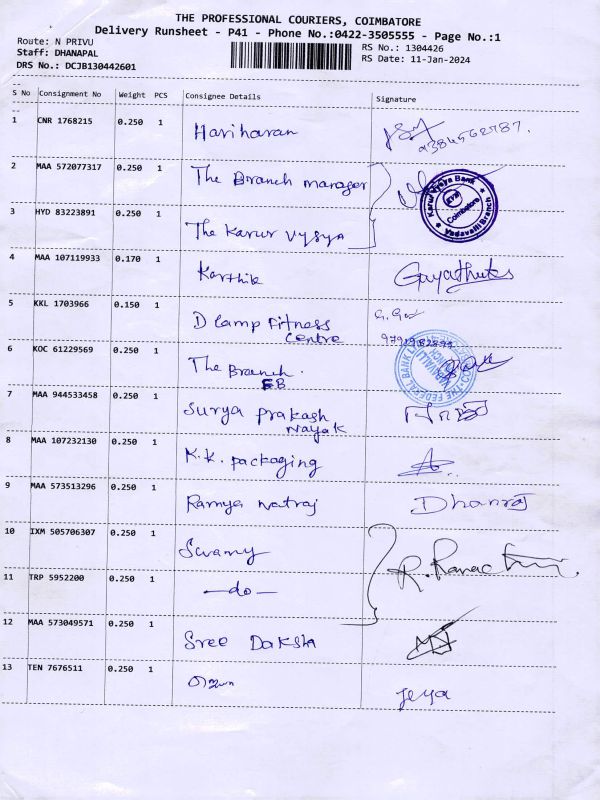 THE PROFESSIONAL COURIERS, COIMBATORE
Delivery Runsheet - P41 - Phone No.:0422-3505555 - Page No.:1
Route: N PRIVU
Staff: DHANAPAL
DRS No.: DCJB130442601
RS No.: 1304426
RS Date: 11-Jan-2024
S No Consignment No Weight PCS Consignee Details Signature
1 CNR 1768215 0.250 1 Hariharan
9384562787.
2 MAA 572077317 0.250 1 The Branch manager
Karur Vysya Bank
Coimbatore
Vadavalli Branch
3 HYD 83223891 0.250 1 The Karur Vysya
4 MAA 107119933 0.170 1 Karthik
5 KKL 1703966 0.150 1 D Camp Fitness
Centre
6 KOC 61229569 0.250 1 The Branch.
FB
THE FEDERAL BANK
7 MAA 944533458 0.250 1 Surya prakash
Nayak
8 MAA 107232130 0.250 1 K.K. packaging
9 MAA 573513296 0.250 1 Ramya natraj Dhanraj
10 IXM 505706307 0.250 1 Swamy
11 TRP 5952200 0.250 1 —do—
12 MAA 573049571 0.250 1 Sree Daksha
13 TEN 7676511 0.250 1 Jeya